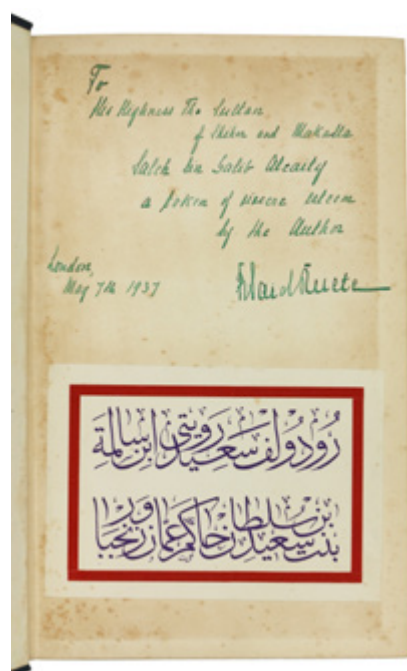 To
His Highness The Sultan
of Shehr and Makalla
Saleh bin Galib Alcaity
a token of sincere esteem
by the Author
London,
May 7th 1937
RSaidRuete
رُودُولف سَعِيد رُويتي ابن سَالِمَة
بنت سَعِيد بن سُلطَان حَاكم عُمَان وزنجبَار